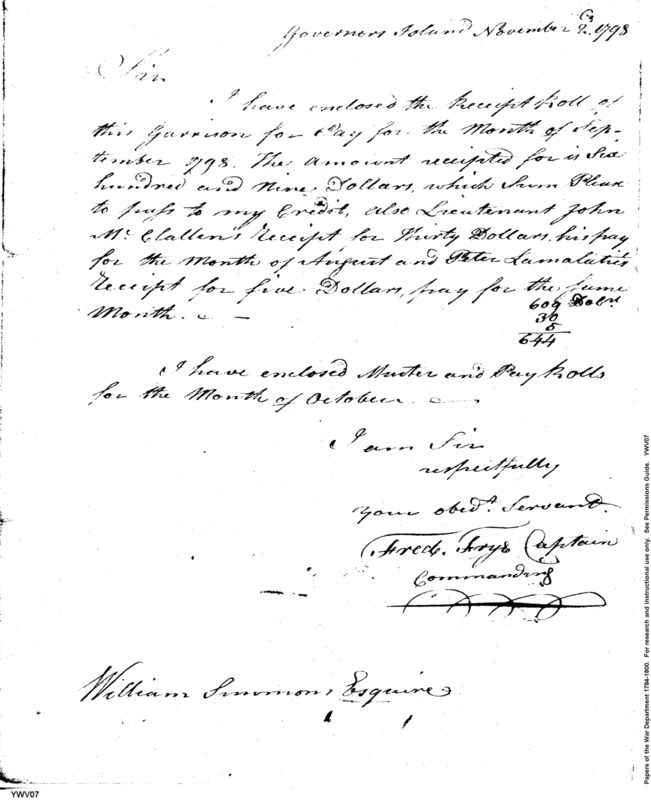 Governors Island November 2. 1798
Sir
I have enclosed the Receipt Roll of
this Garrison for Pay for the Month of Sep-
tember 1798. The amount receipted for is Six
hundred and Nine Dollars, which Sum Please
to pass to my Credit, also Lieutenant John
Mc Clallen's Receipt for Thirty Dollars, his pay
for the Month of August and Peter
Receipt for five Dollars, pay for the Same
Month.
609 Dolrs
30
5
644
I have enclosed Muster and Pay Rolls
for the Month of October.
I am Sir
respectfully
Your obedt. Servant.
Fredk. Frye Captain
Commanding
William Simmons Esquire
YWV07
Papers of the War Department 1784-1800. For research and instructional use only. See Permissions Guide. YWV07